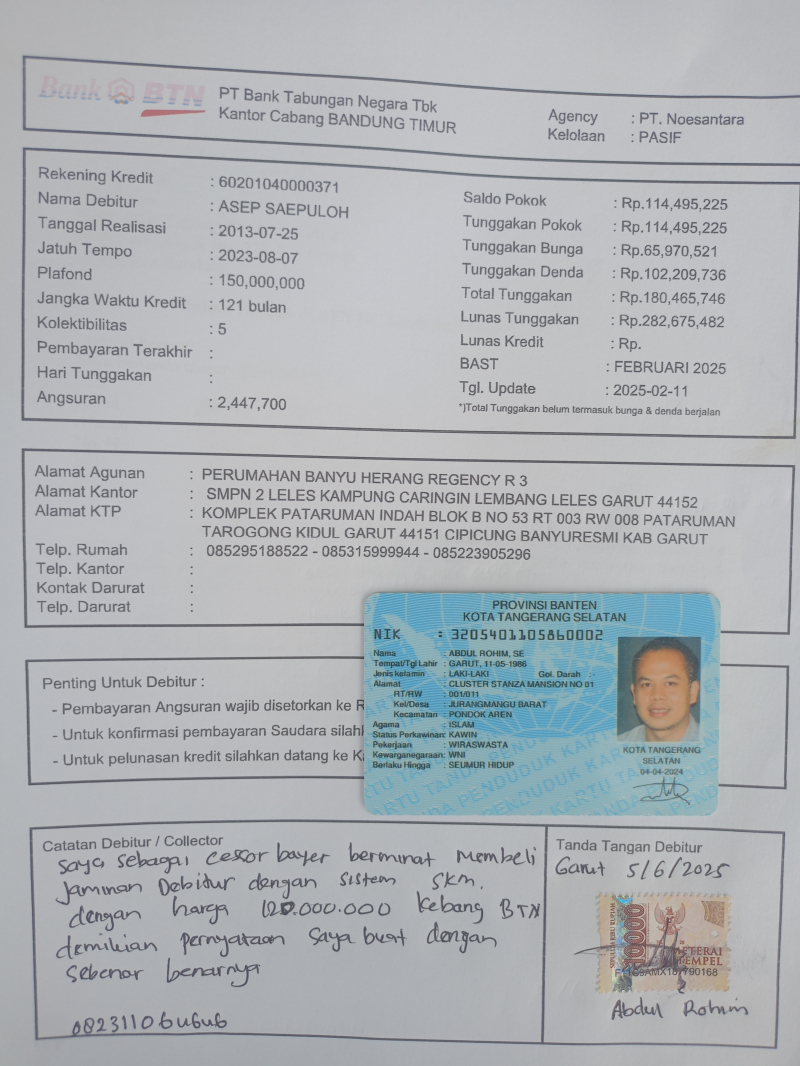 Bank BTN
PT Bank Tabungan Negara Tbk
Kantor Cabang BANDUNG TIMUR
Agency : PT. Noesantara
Kelolaan : PASIF
Rekening Kredit : 60201040000371
Nama Debitur : ASEP SAEPULOH
Tanggal Realisasi : 2013-07-25
Jatuh Tempo : 2023-08-07
Plafond : 150,000,000
Jangka Waktu Kredit : 121 bulan
Kolektibilitas : 5
Pembayaran Terakhir :
Hari Tunggakan :
Angsuran : 2,447,700
Saldo Pokok : Rp.114,495,225
Tunggakan Pokok : Rp.114,495,225
Tunggakan Bunga : Rp.65,970,521
Tunggakan Denda : Rp.102,209,736
Total Tunggakan : Rp.180,465,746
Lunas Tunggakan : Rp.282,675,482
Lunas Kredit : Rp.
BAST : FEBRUARI 2025
Tgl. Update : 2025-02-11
*)Total Tunggakan belum termasuk bunga & denda berjalan
Alamat Agunan : PERUMAHAN BANYU HERANG REGENCY R 3
Alamat Kantor : SMPN 2 LELES KAMPUNG CARINGIN LEMBANG LELES GARUT 44152
Alamat KTP : KOMPLEK PATARUMAN INDAH BLOK B NO 53 RT 003 RW 008 PATARUMAN
TAROGONG KIDUL GARUT 44151 CIPICUNG BANYURESMI KAB GARUT
Telp. Rumah : 085295188522 - 085315999944 - 085223905296
Telp. Kantor :
Kontak Darurat :
Telp. Darurat :
PROVINSI BANTEN
KOTA TANGERANG SELATAN
NIK : 3205401105860002
Nama : ABDUL ROHIM, SE
Tempat/Tgl Lahir : GARUT, 11-05-1986
Jenis kelamin : LAKI-LAKI Gol. Darah : -
Alamat : CLUSTER STANZA MANSION NO 01
RT/RW : 001/011
Kel/Desa : JURANGMANGU BARAT
Kecamatan : PONDOK AREN
Agama : ISLAM
Status Perkawinan: KAWIN
Pekerjaan : WIRASWASTA
Kewarganegaraan: WNI
Berlaku Hingga : SEUMUR HIDUP
KOTA TANGERANG
SELATAN
04-04-2024
Penting Untuk Debitur :
- Pembayaran Angsuran wajib disetorkan ke
- Untuk konfirmasi pembayaran Saudara
- Untuk pelunasan kredit silahkan datang ke
Catatan Debitur / Collector
saya sebagai cessor bayer berminat membeli
Jaminan Debitur dengan sistem SKM.
dengan harga 120.000.000 kebang BTN
demikian pernyataan saya buat dengan
sebenar benarnya
082311064646
Tanda Tangan Debitur
Garut 5/6/2025
SEPULUH RIBU RUPIAH
10000
METERAI
TEMPEL
Abdul Rohim